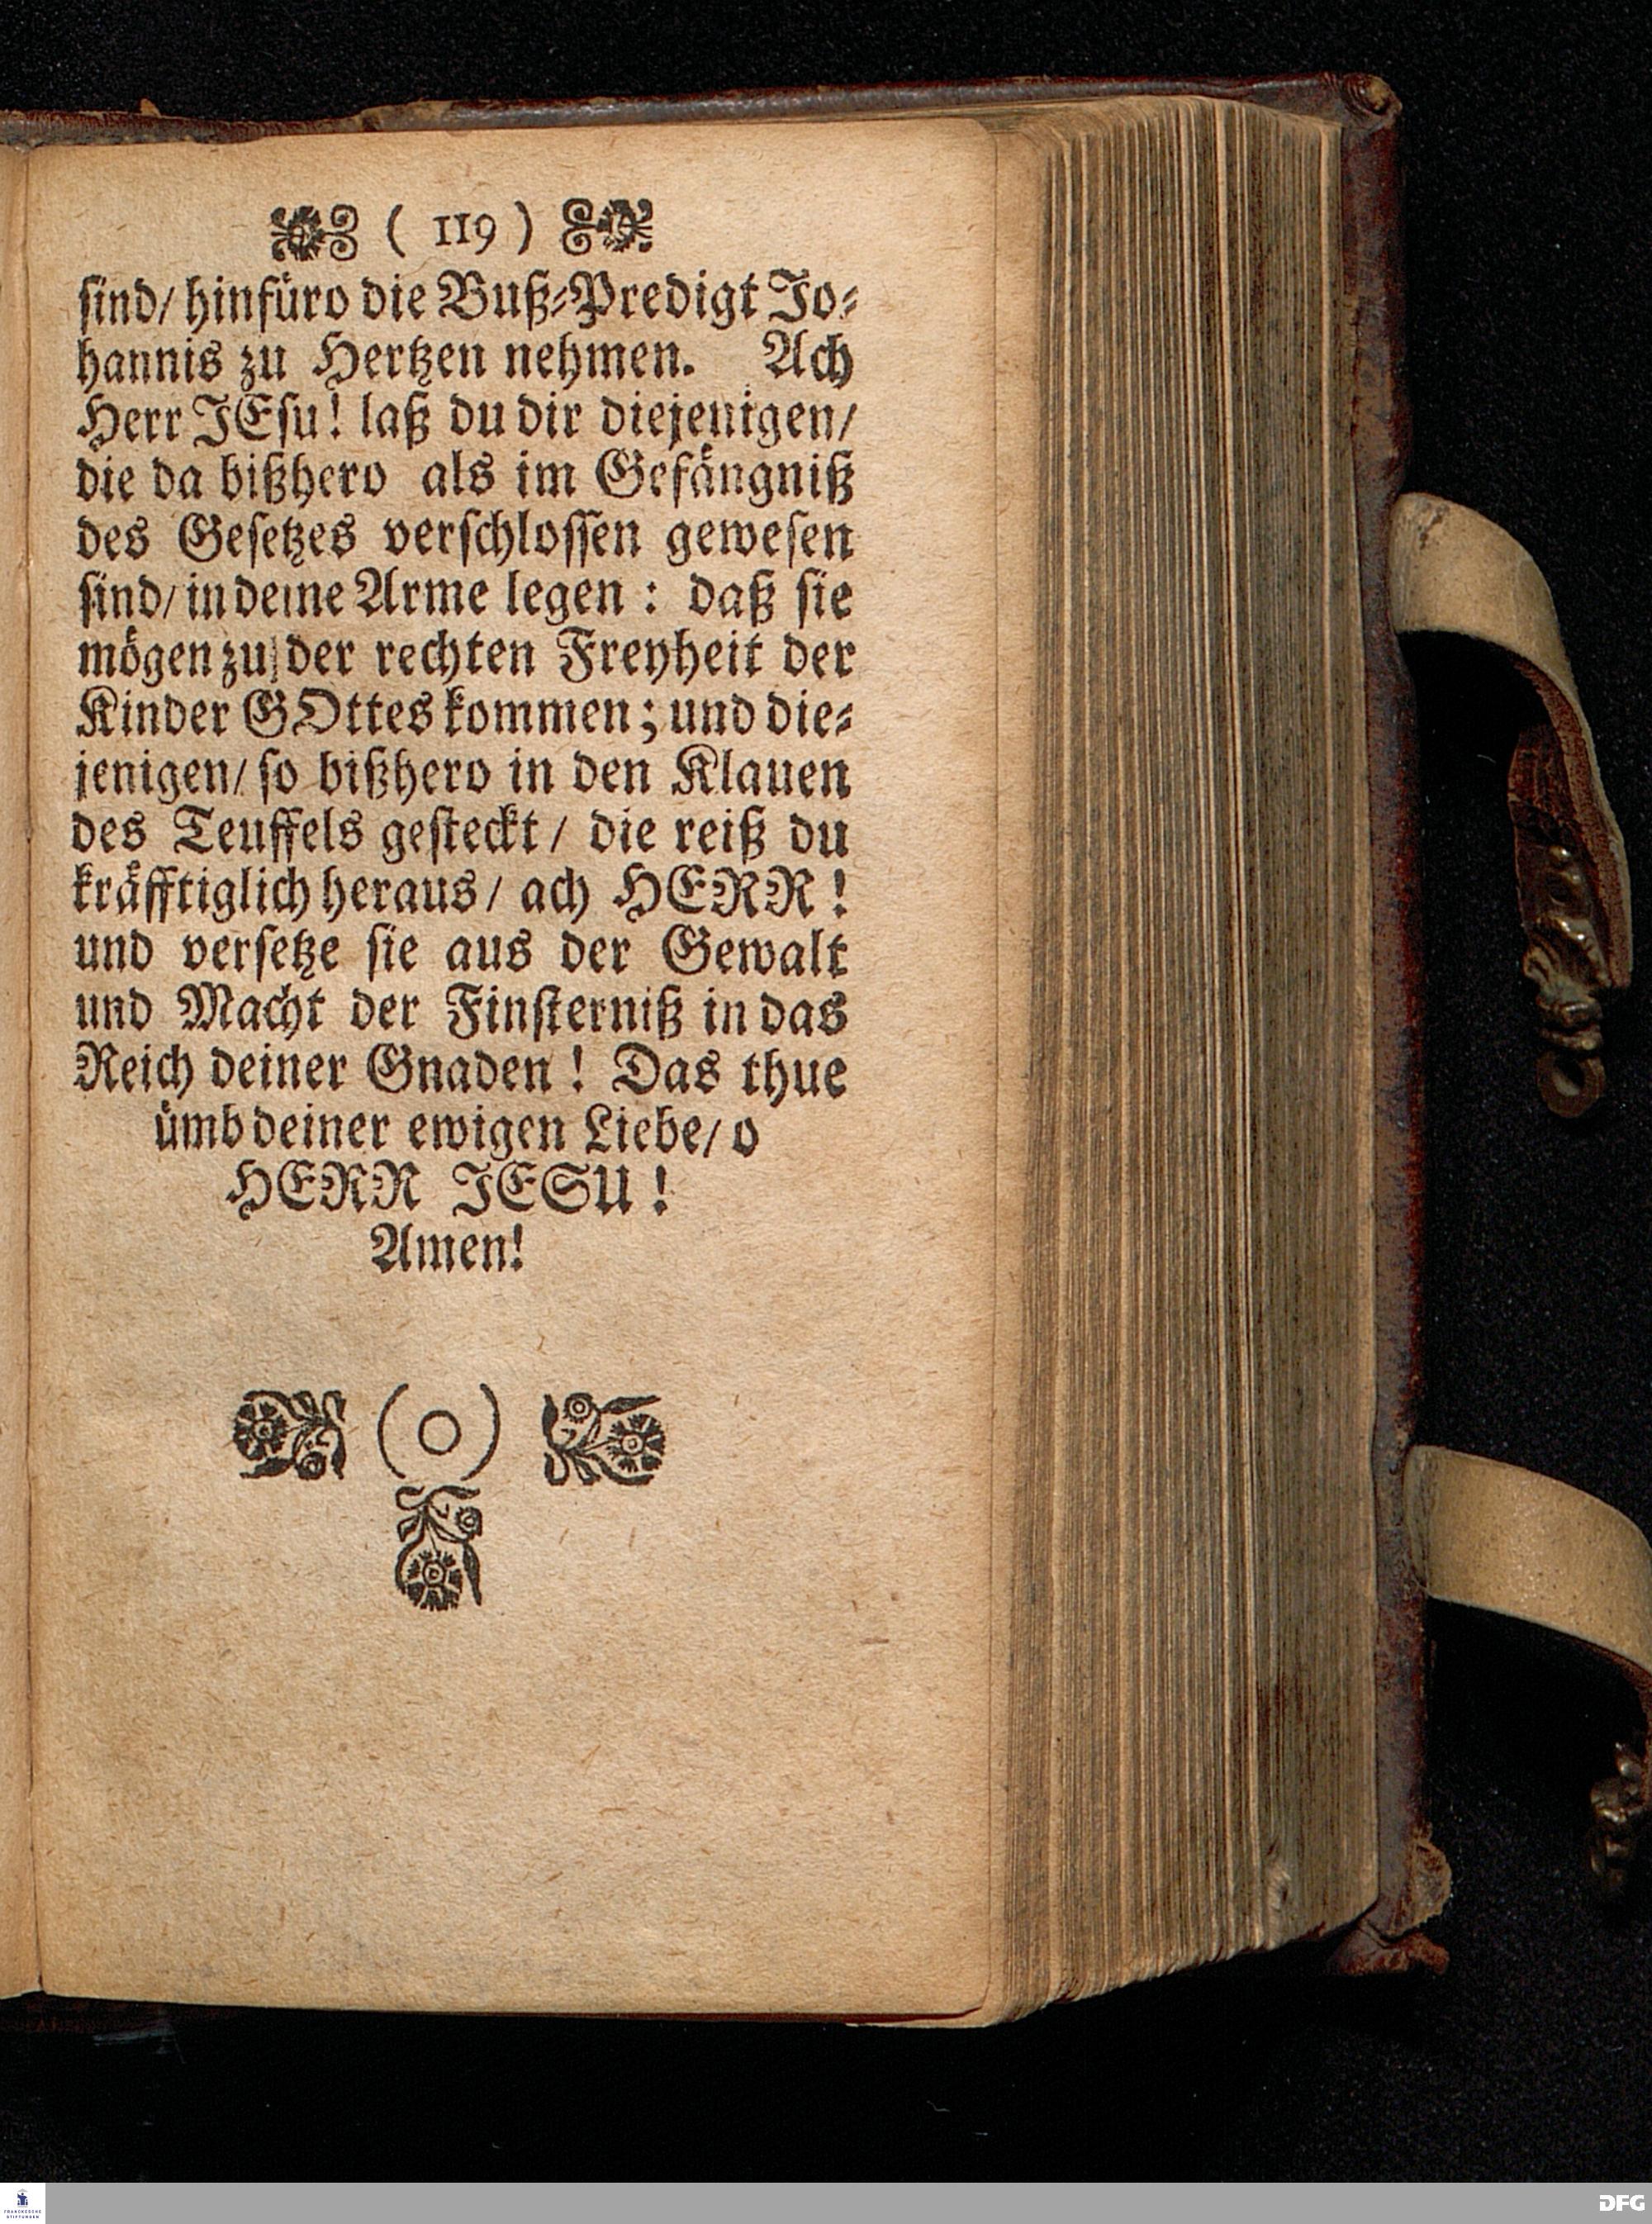 ( 119 )
sind/ hinfüro die Buß-Predigt Jo-
hannis zu Hertzen nehmen. Ach
Herr JEsu! laß du dir diejenigen/
die da bißhero als im Gefängniß
des Gesetzes verschlossen gewesen
sind/ in deine Arme legen: daß sie
mögen zu der rechten Freyheit der
Kinder GOttes kommen; und die-
jenigen/ so bißhero in den Klauen
des Teuffels gesteckt/ die reiß du
kräfftiglich heraus/ ach HERR!
und versetze sie aus der Gewalt
und Macht der Finsterniß in das
Reich deiner Gnaden! Das thue
ümb deiner ewigen Liebe/ o
HERR JESU!
Amen!
(O)
FRANCKESCHE
STIFTUNGEN
DFG